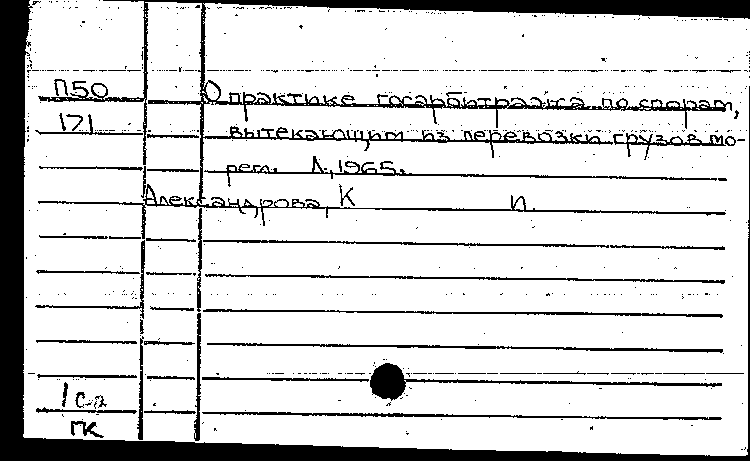 П50 О практике госарбитража по спорам,
171 вытекающим из перевозки грузов мо-
рем. Л., 1965.
Александрова, К п.
1
ГК